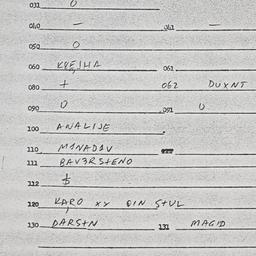 031 0
040 — 041 —
050 0
060 KVEJHA 061
080 + 062 DUXNT
090 0 091 U
100 ANALIJE
110 MANADAV
111 BAV3RSTENO
112
120 KARO XY OIN STUL
130 DARSTN 131 MAGID